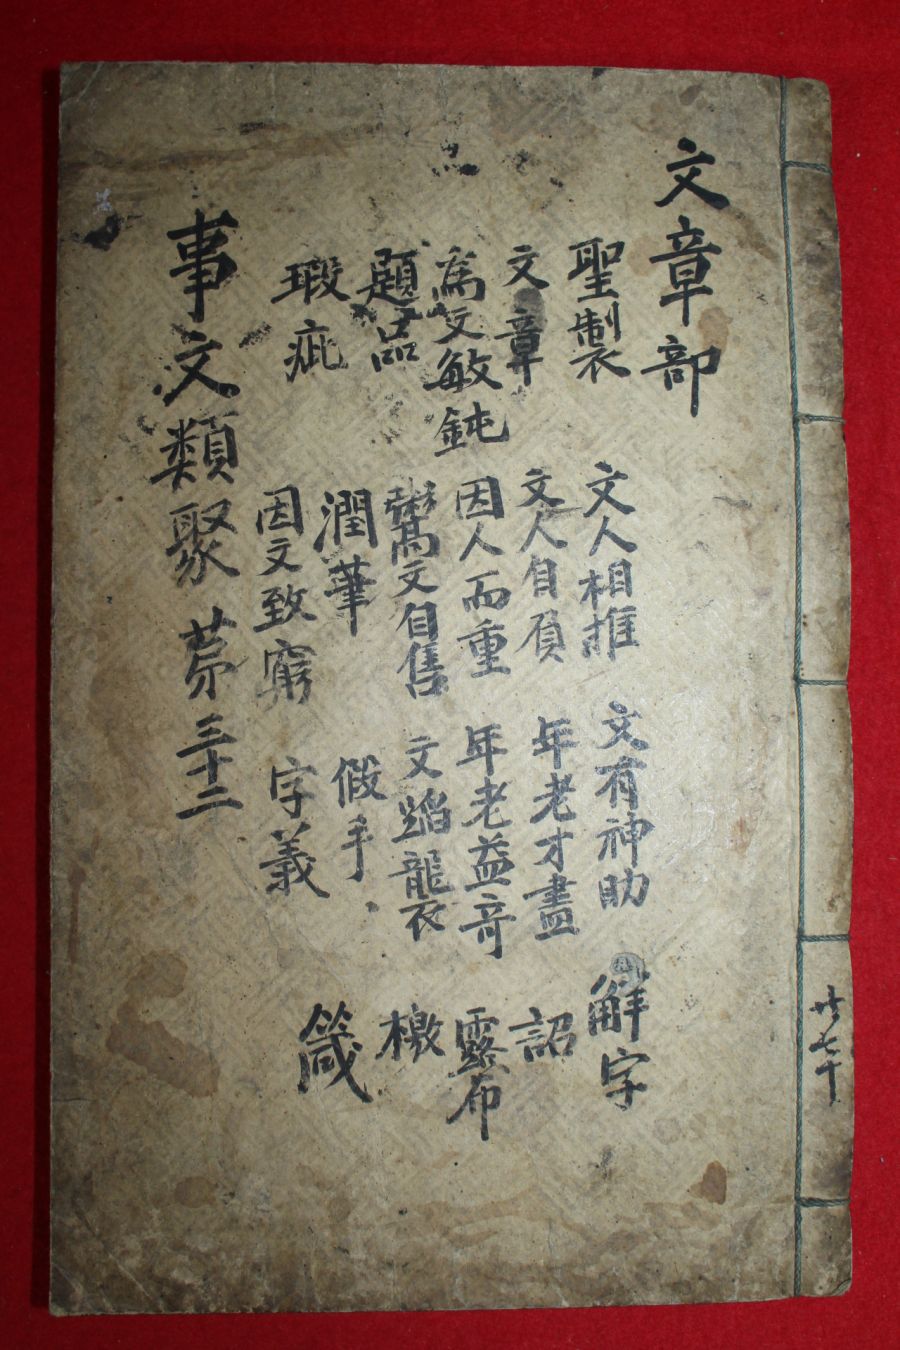 文章部
聖製
文章
為文敏鈍
題品
瑕疵
文人相推
文人自負
因人而重
鬻文自售
潤筆
因文致窮
文有神助
年老才盡
年老益奇
文蹈襲
假手
字義
解字
詔
露布
檄
箴
事文類聚 苐三十二
共七十